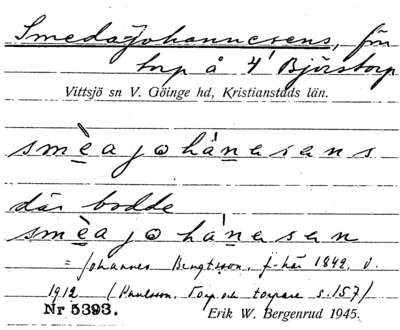 Smedajohannesens, för
torp å 4' Björstorp
Vittsjö sn V. Göinge hd, Kristianstads län.
smèajohánasans
där bodde
smèajohánasan
= Johannes Bengtsson, f. här 1842, d.
1912 (Paulsson, Torp och torpare s. 157)
Nr 5393. Erik W. Bergenrud 1945.